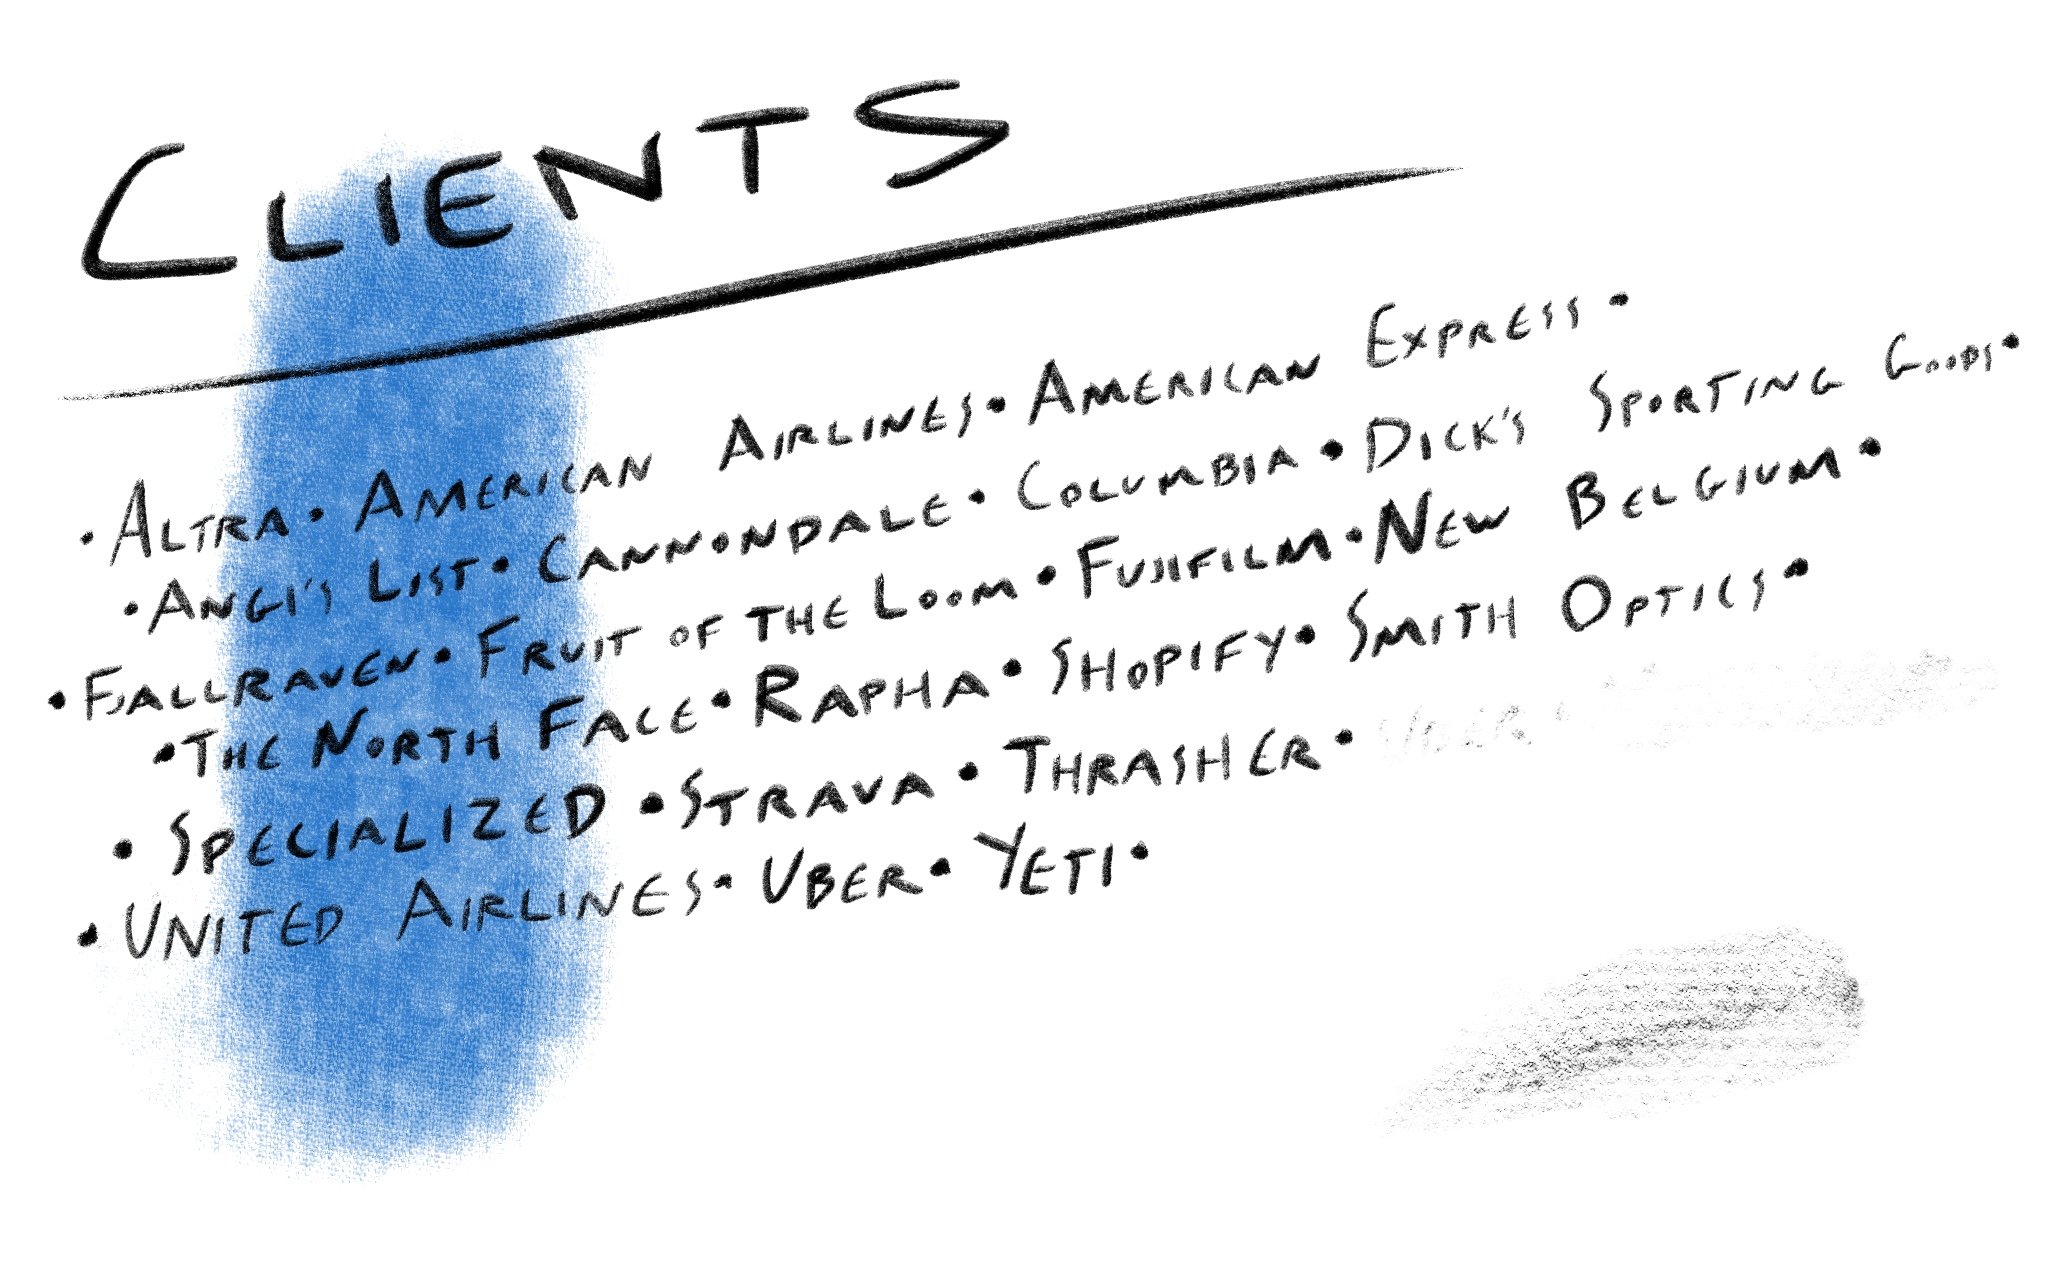 CLIENTS
• ALTRA • AMERICAN AIRLINES • AMERICAN EXPRESS •
• ANGI'S LIST • CANNONDALE • COLUMBIA • DICK'S SPORTING GOODS •
• FJALLRAVEN • FRUIT OF THE LOOM • FUJIFILM • NEW BELGIUM •
• THE NORTH FACE • RAPHA • SHOPIFY • SMITH OPTICS •
• SPECIALIZED • STRAVA • THRASHER • UBER •
• UNITED AIRLINES • UBER • YETI •